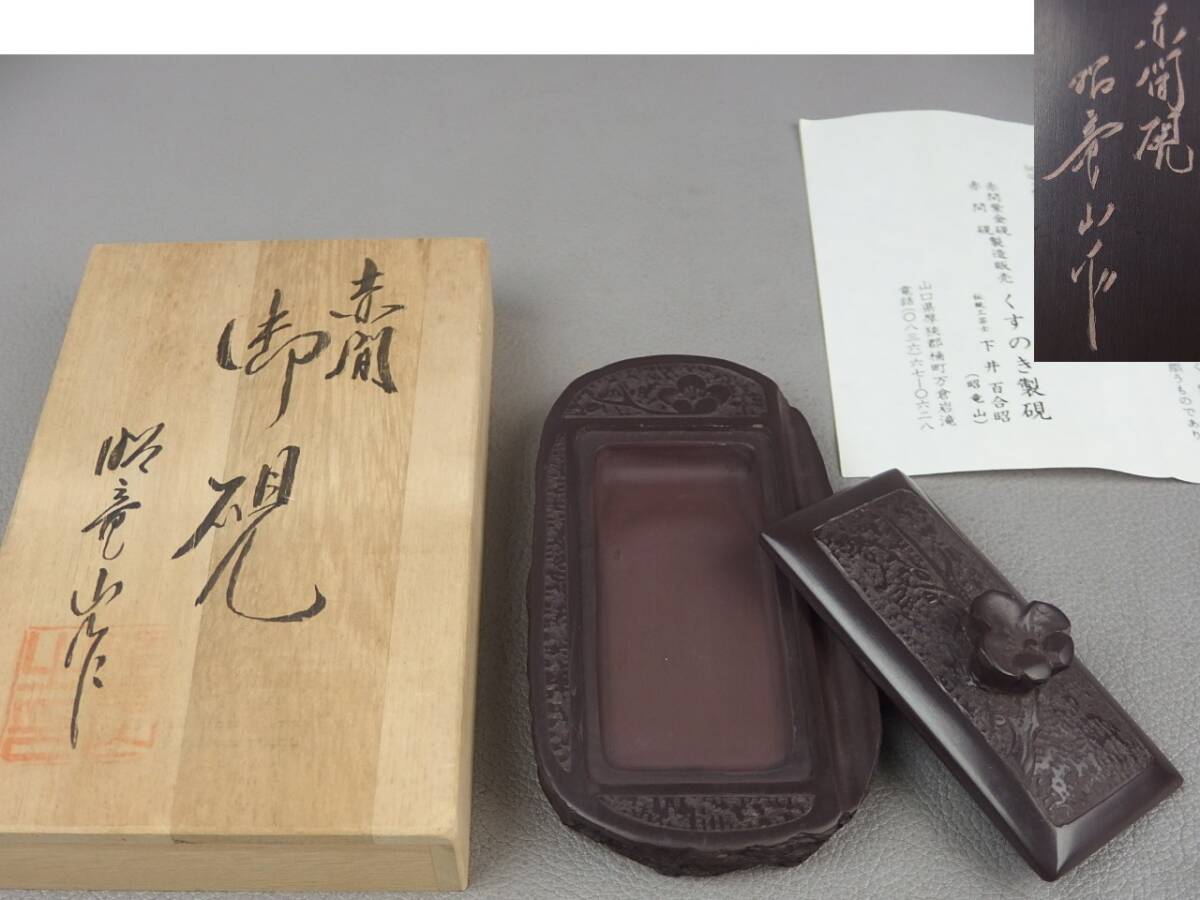 赤間
御硯
昭竜山作
赤間硯
昭竜山作
赤間紫金硯製造販売
赤間硯
くすのき製硯
伝統工芸士 下井百合昭
(昭竜山)
山口県厚狭郡楠町万倉岩滝
電話(〇八三六)六七ー〇六二八
願うものであり